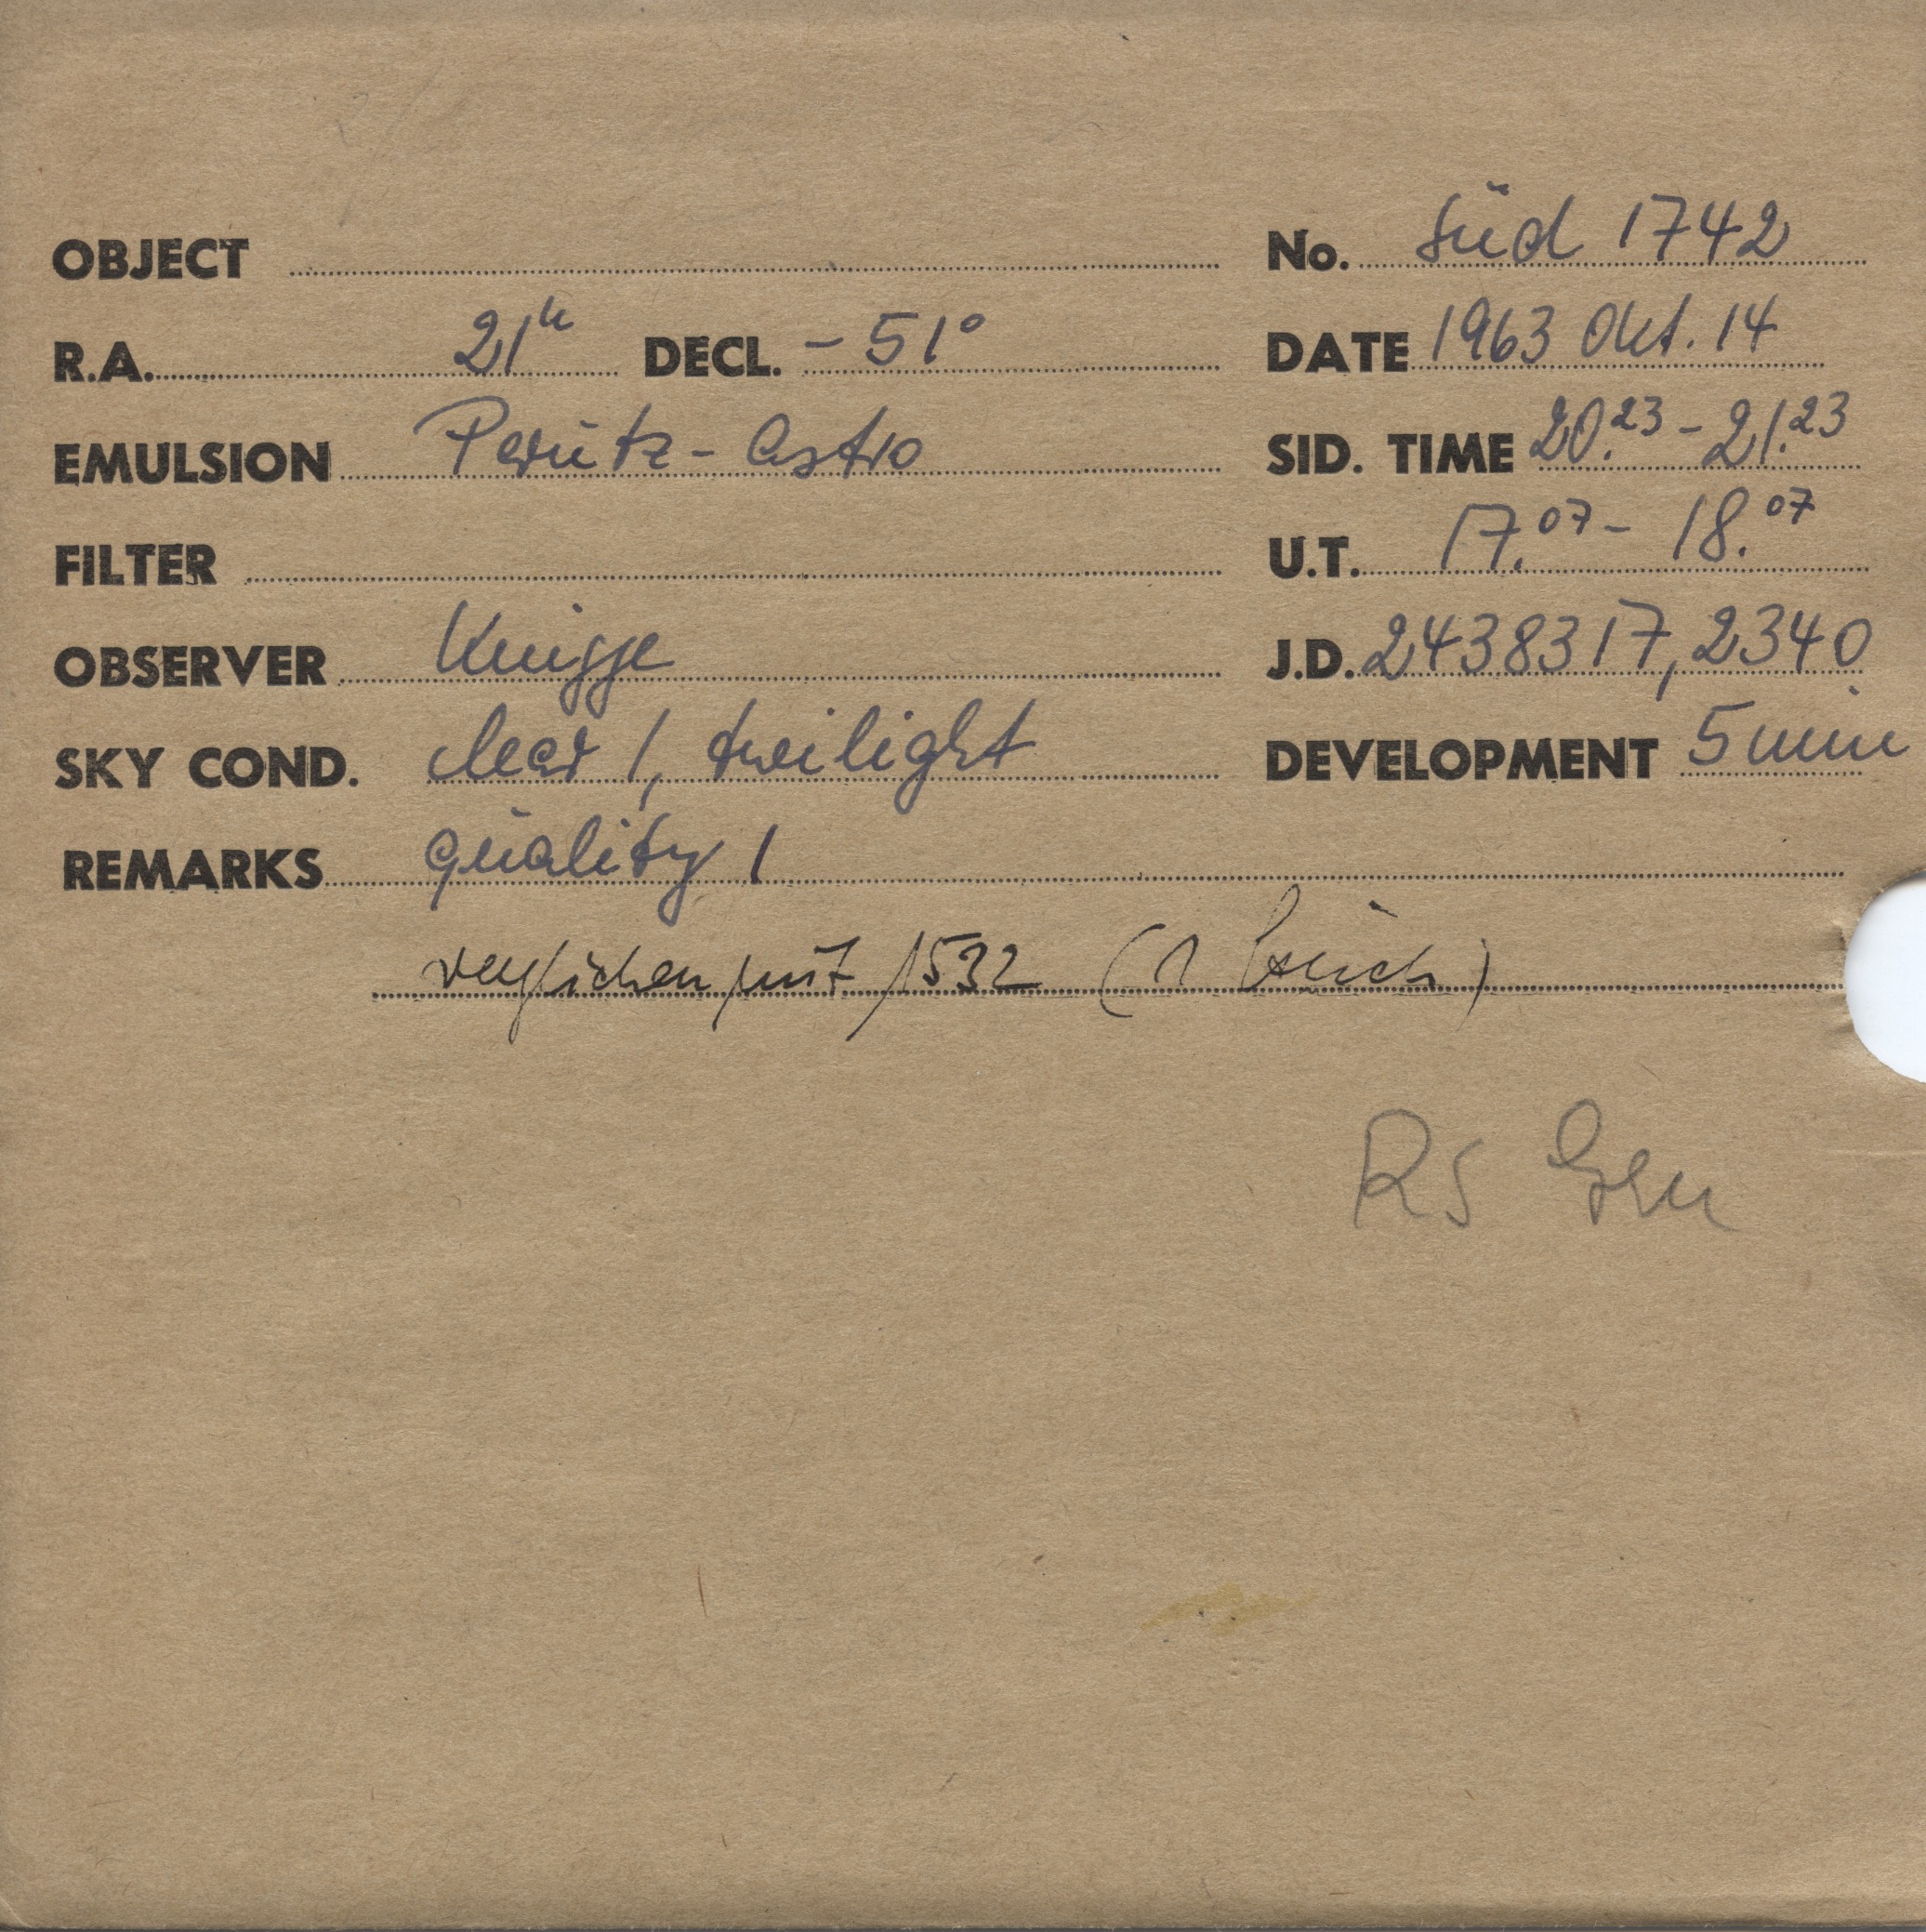 OBJECT No. Süd 1742
R.A. 21h DECL. - 51° DATE 1963 Okt. 14
EMULSION Perutz - Astro SID. TIME 20.23 - 21.23
FILTER U.T. 17.07 - 18.07
OBSERVER Knigge J.D. 2438317,2340
SKY COND. clear 1, twilight DEVELOPMENT 5 min
REMARKS quality 1
verglichen mit 1532 (1
RS Gru